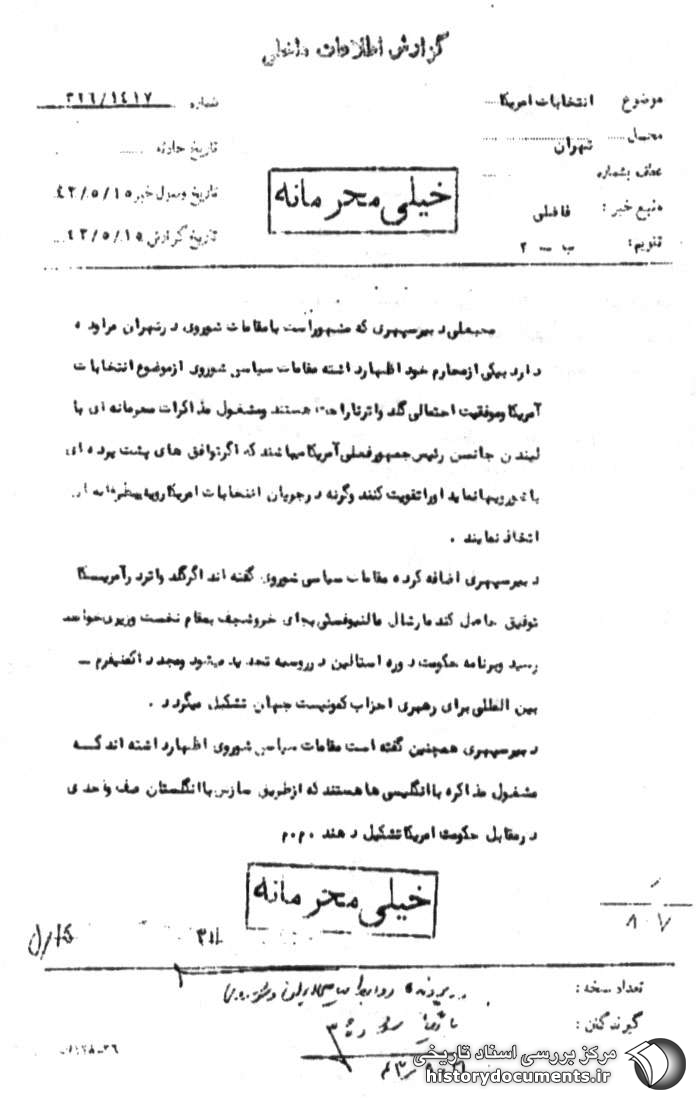 گزارش اطلاعات داخلی
موضوع انتخابات امریکا
شماره ۳۲۶/۱۴۱۷
محل تهران
تاریخ حادثه
عطف بشماره
تاریخ وصول خبر ۴۳/۵/۱۵
منبع خبر: فاضلی
تاریخ گزارش ۴۳/۵/۱۵
تقویم: ب - ۲
خیلی محرمانه
محمدعلی دبیرسپهری که مشهور است با مقامات شوروی در تهران مراوده
دارد بیکی از محارم خود اظهار داشته مقامات سیاسی شوروی از موضوع انتخابات
آمریکا و موفقیت احتمالی گلد واتر ناراحت هستند و مشغول مذاکرات محرمانه ای با
لیندن جانسن رئیس جمهور فعلی آمریکا میباشند که اگر توافق های پشت پرده ای
با شورویها نماید او را تقویت کنند وگرنه در جریان انتخابات امریکا رویه
اتخاذ نمایند .
دبیرسپهری اضافه کرده مقامات سیاسی شوروی گفته اند اگر گلد واتر در آمریکا
توفیق حاصل کند مارشال مالینوفسکی بجای خروشچف بمقام نخست وزیری خواهد
رسید و برنامه حکومت دوره استالین در روسیه تجدید میشود و مجددا کمینفرم –
بین المللی برای رهبری احزاب کمونیست جهان تشکیل میگردد .
دبیرسپهری همچنین گفته است مقامات سیاسی شوروی اظهار داشته اند که
مشغول مذاکره با انگلیسی ها هستند که از طریق سازش با انگلستان صف واحدی
در مقابل حکومت امریکا تشکیل دهند .م.م
خیلی محرمانه
۸۰۷
۳۱۱
تعداد نسخه :
گیرندگان :
مرکز بررسی اسناد تاریخی
historydocuments.ir